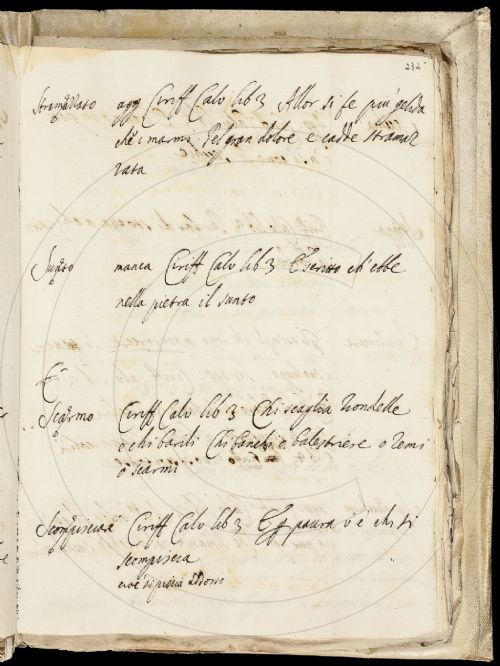 232
Stramazzato agg Ciriff Calv lib 3 Allor si fe più gelida
che i marmi Pel gran dolore e cadde stramaz
zata
Sunto manca Ciriff Calv lib 3 E scritto ch'ebbe
nella pietra il sunto
Scarmo Ciriff Calv lib 3 Chi scaglia rondelle
e chi barili Chi banchi e balestriere o remi
o scarmi
Scompisciare Ciriff Calv lib 3 paura v'è chi si
scompiscia
cioè si piscia addosso